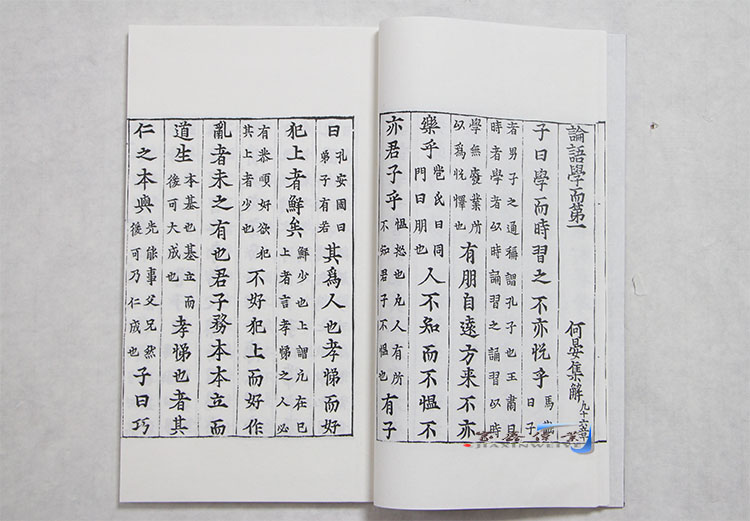 論語學而第一 何晏集解 凢十六章
子曰學而時習之不亦悅乎 馬 曰子
者男子之通稱謂孔子也王肅曰時者學者以時誦習之誦習以時
學無廢業所以為悅懌也 有朋自遠方来不亦
樂乎 苞氏曰同門曰朋也 人不知而不慍不
亦君子乎 慍怒也凢人有所不知君子不慍也 有子
曰 孔安國曰弟子有若 其為人也孝悌而好
犯上者鮮矣 鮮少也上謂凢在己上者言孝悌之人必
有恭順好欲犯其上者少也 不好犯上而好作
亂者未之有也君子務本本立而
道生 本基也基立而後可大成也 孝悌也者其
仁之本與 先能事父兄然後可乃仁成也 子曰巧